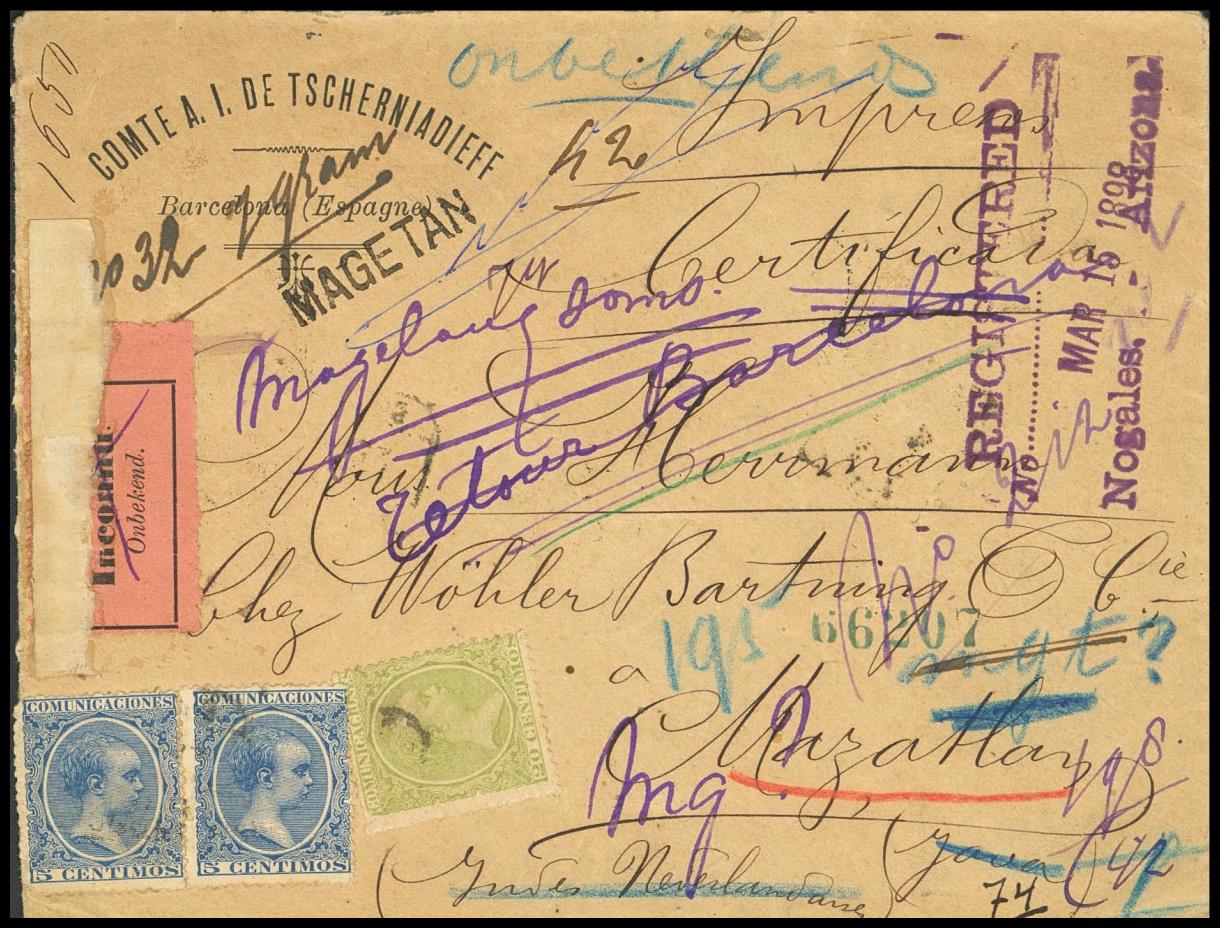 1650
onbekend
COMTE A. I. DE TSCHERNIADIEFF
Barcelona (Espagne)
no 32
MAGETAN
42
Imprens
Certificada
REGISTERED
No.
MAR 15 1898
Nogales. - Arizona.
Magelang
Retour Barcelona
Inconnu
Onbekend.
Herrmann
Chez Wöhler Bartning & Cie
195
66207
mgt?
à
Mazatlan
Mg?
COMUNICACIONES
5 CENTIMOS
COMUNICACIONES
5 CENTIMOS
COMUNICACIONES
20 CENTIMOS
(Indes Neerlandaises) (Java)
74